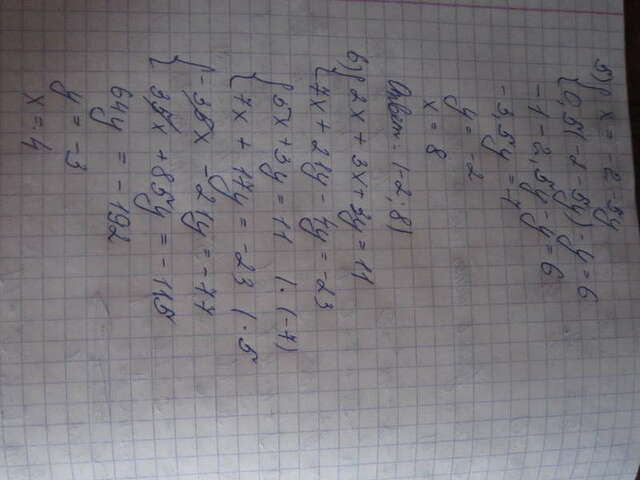 5) { x = -2 - 5y
0,5(-2 - 5y) - y = 6
-1 - 2,5y - y = 6
-3,5y = 7
y = -2
x = 8
Ответ: (-2; 8)
6) { 2x + 3x + 3y = 11
7x + 21y - 4y = -23
{ 5x + 3y = 11 | · (-7)
7x + 17y = -23 | · 5
{ -35x - 21y = -77
35x + 85y = -115
64y = -192
y = -3
x = 4